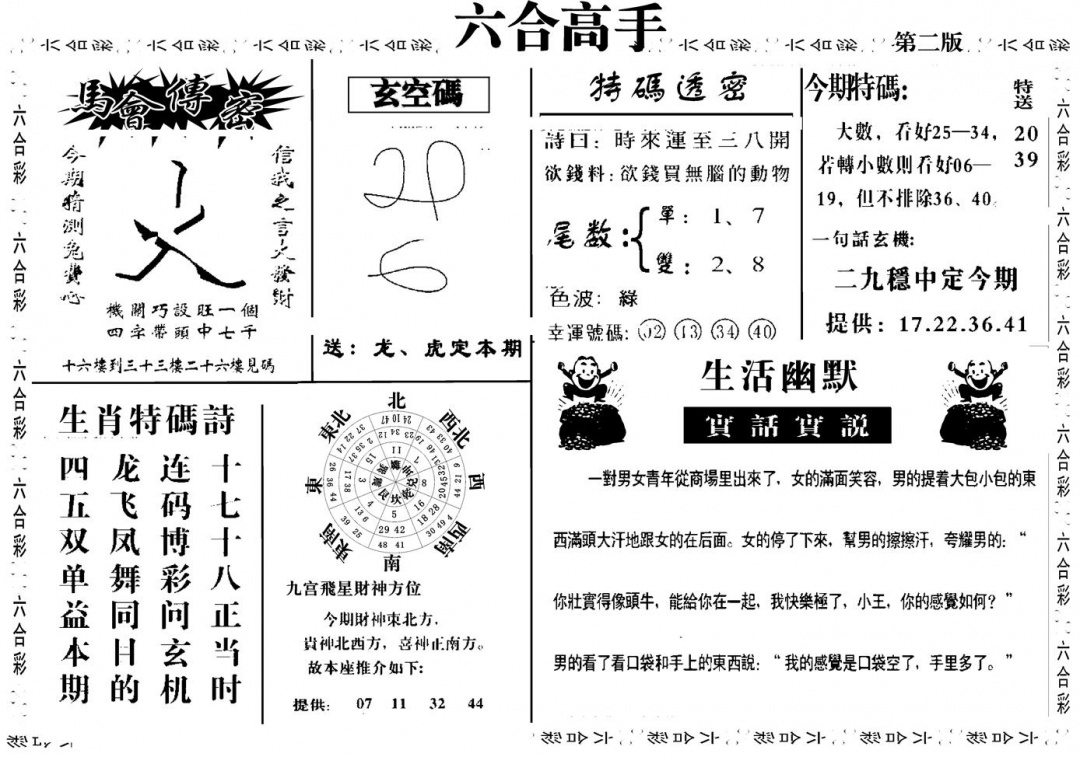 六合高手
第二版
六合彩 六合彩 六合彩 六合彩 六合彩 六合彩 六合彩
馬會傳密
今期猜測免費心
信我之言大發財
機關巧設旺一個
四字帶頭中七千
十六樓到三十三樓二十六樓見碼
玄空碼
送：龙、虎定本期
特碼透密
詩曰：時來運至三八開
欲錢料：欲錢買無腦的動物
尾数：
單：1、7
雙：2、8
色波：綠
幸運號碼：02 13 34 40
今期特碼：
特送
20
39
大數，看好25—34，
若轉小數則看好06—
19，但不排除36、40。
一句話玄機：
二九穩中定今期
提供：17.22.36.41
生肖特碼詩
十七十八正当时
连码博彩问玄机
龙飞凤舞同日的
四五双单益本期
北
西北
西
西南
南
東南
東
東北
九宫飛星財神方位
今期財神東北方，
貴神北西方，喜神正南方。
故本座推介如下：
提供：07 11 32 44
生活幽默
實話實説
一對男女青年從商場里出來了，女的滿面笑容，男的提着大包小包的東
西滿頭大汗地跟女的在后面。女的停了下來，幫男的擦擦汗，夸耀男的：“
你壯實得像頭牛，能給你在一起，我快樂極了，小王，你的感覺如何？”
男的看了看口袋和手上的東西說：“我的感覺是口袋空了，手里多了。”